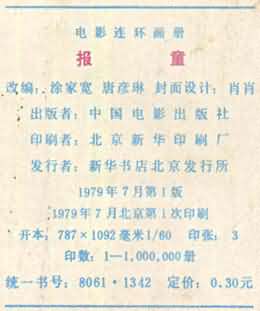 电影连环画册
报童
改编：涂家宽 唐彦琳 封面设计：肖肖
出版者：中国电影出版社
印刷者：北京新华印刷厂
发行者：新华书店北京发行所
1979年7月第1版
1979年7月北京第1次印刷
开本：787×1092毫米1/60 印张：3
印数：1—1,000,000册
统一书号：8061·1342 定价：0.30元